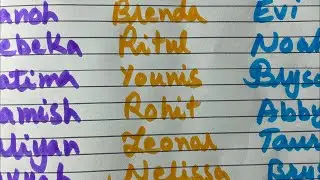 anoh Brenda Evi
ebeka Ritul Noah
atima Younis Brys
amish Rohit Abby
liyan Leonar
Nelissa